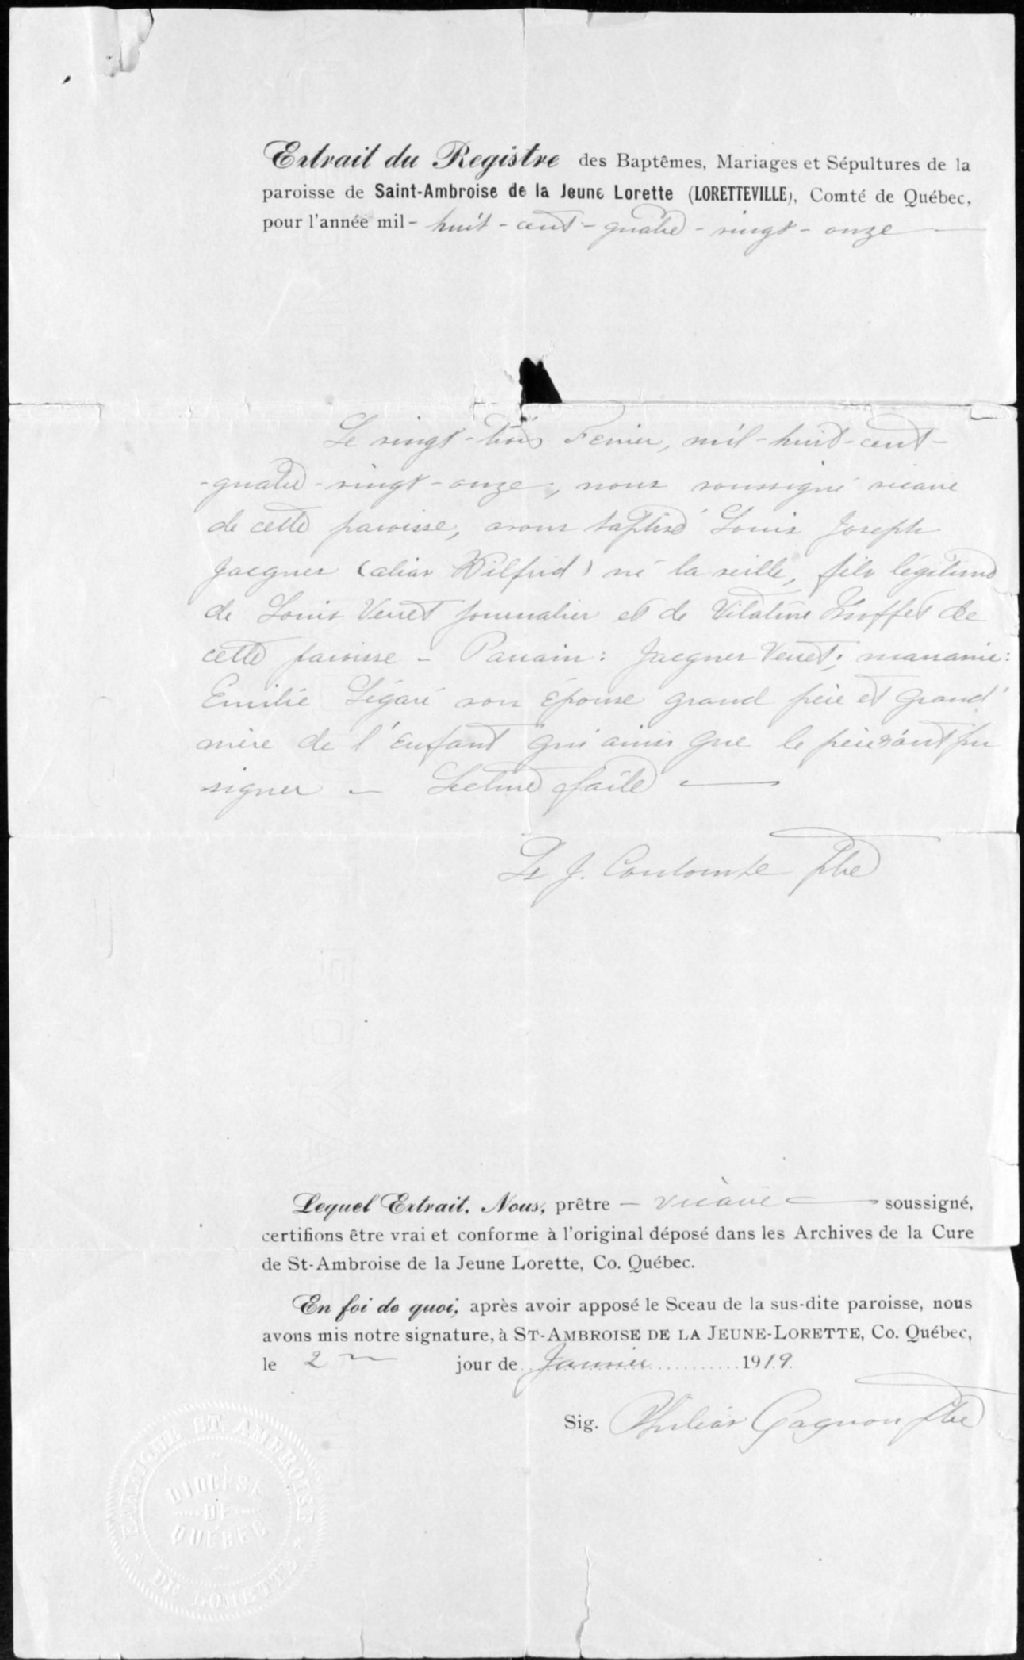 Extrait du Registre des Baptêmes, Mariages et Sépultures de la
paroisse de Saint-Ambroise de la Jeune Lorette (LORETTEVILLE), Comté de Québec,
pour l'année mil- huit-cent-quatre-vingt-onze
Le vingt-trois Fevrier, mil-huit-cent-
-quatre-vingt-onze, nous soussigné vicaire
de cette paroisse, avons baptisé Louis Joseph
Jacques (alias Wilfrid) né la veille, fils légitime
de Louis Verret journalier et de Vitaline Truffet de
cette paroisse - Parrain: Jacques Verret; marraine:
Emilie Légaré son épouse grand père et grand'
mère de l'Enfant qui ainsi que le père n'ont pu
signer - Lecture faite
Ls J. Coulombe Ptre
Lequel Extrait, Nous, prêtre - vicaire soussigné,
certifions être vrai et conforme à l'original déposé dans les Archives de la Cure
de St-Ambroise de la Jeune Lorette, Co. Québec.
En foi de quoi, après avoir apposé le Sceau de la sus-dite paroisse, nous
avons mis notre signature, à ST-AMBROISE DE LA JEUNE-LORETTE, Co. Québec,
le 2 jour de Janvier 1919
Sig. Philias Gagnon Ptre
ST AMBROISE
DE LORETTE
DIOCÈSE
DE
QUÉBEC